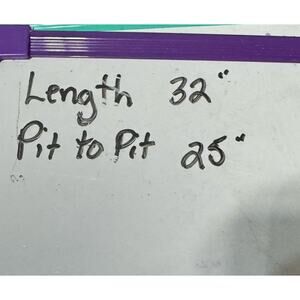 Length 32"
Pit to Pit 25"